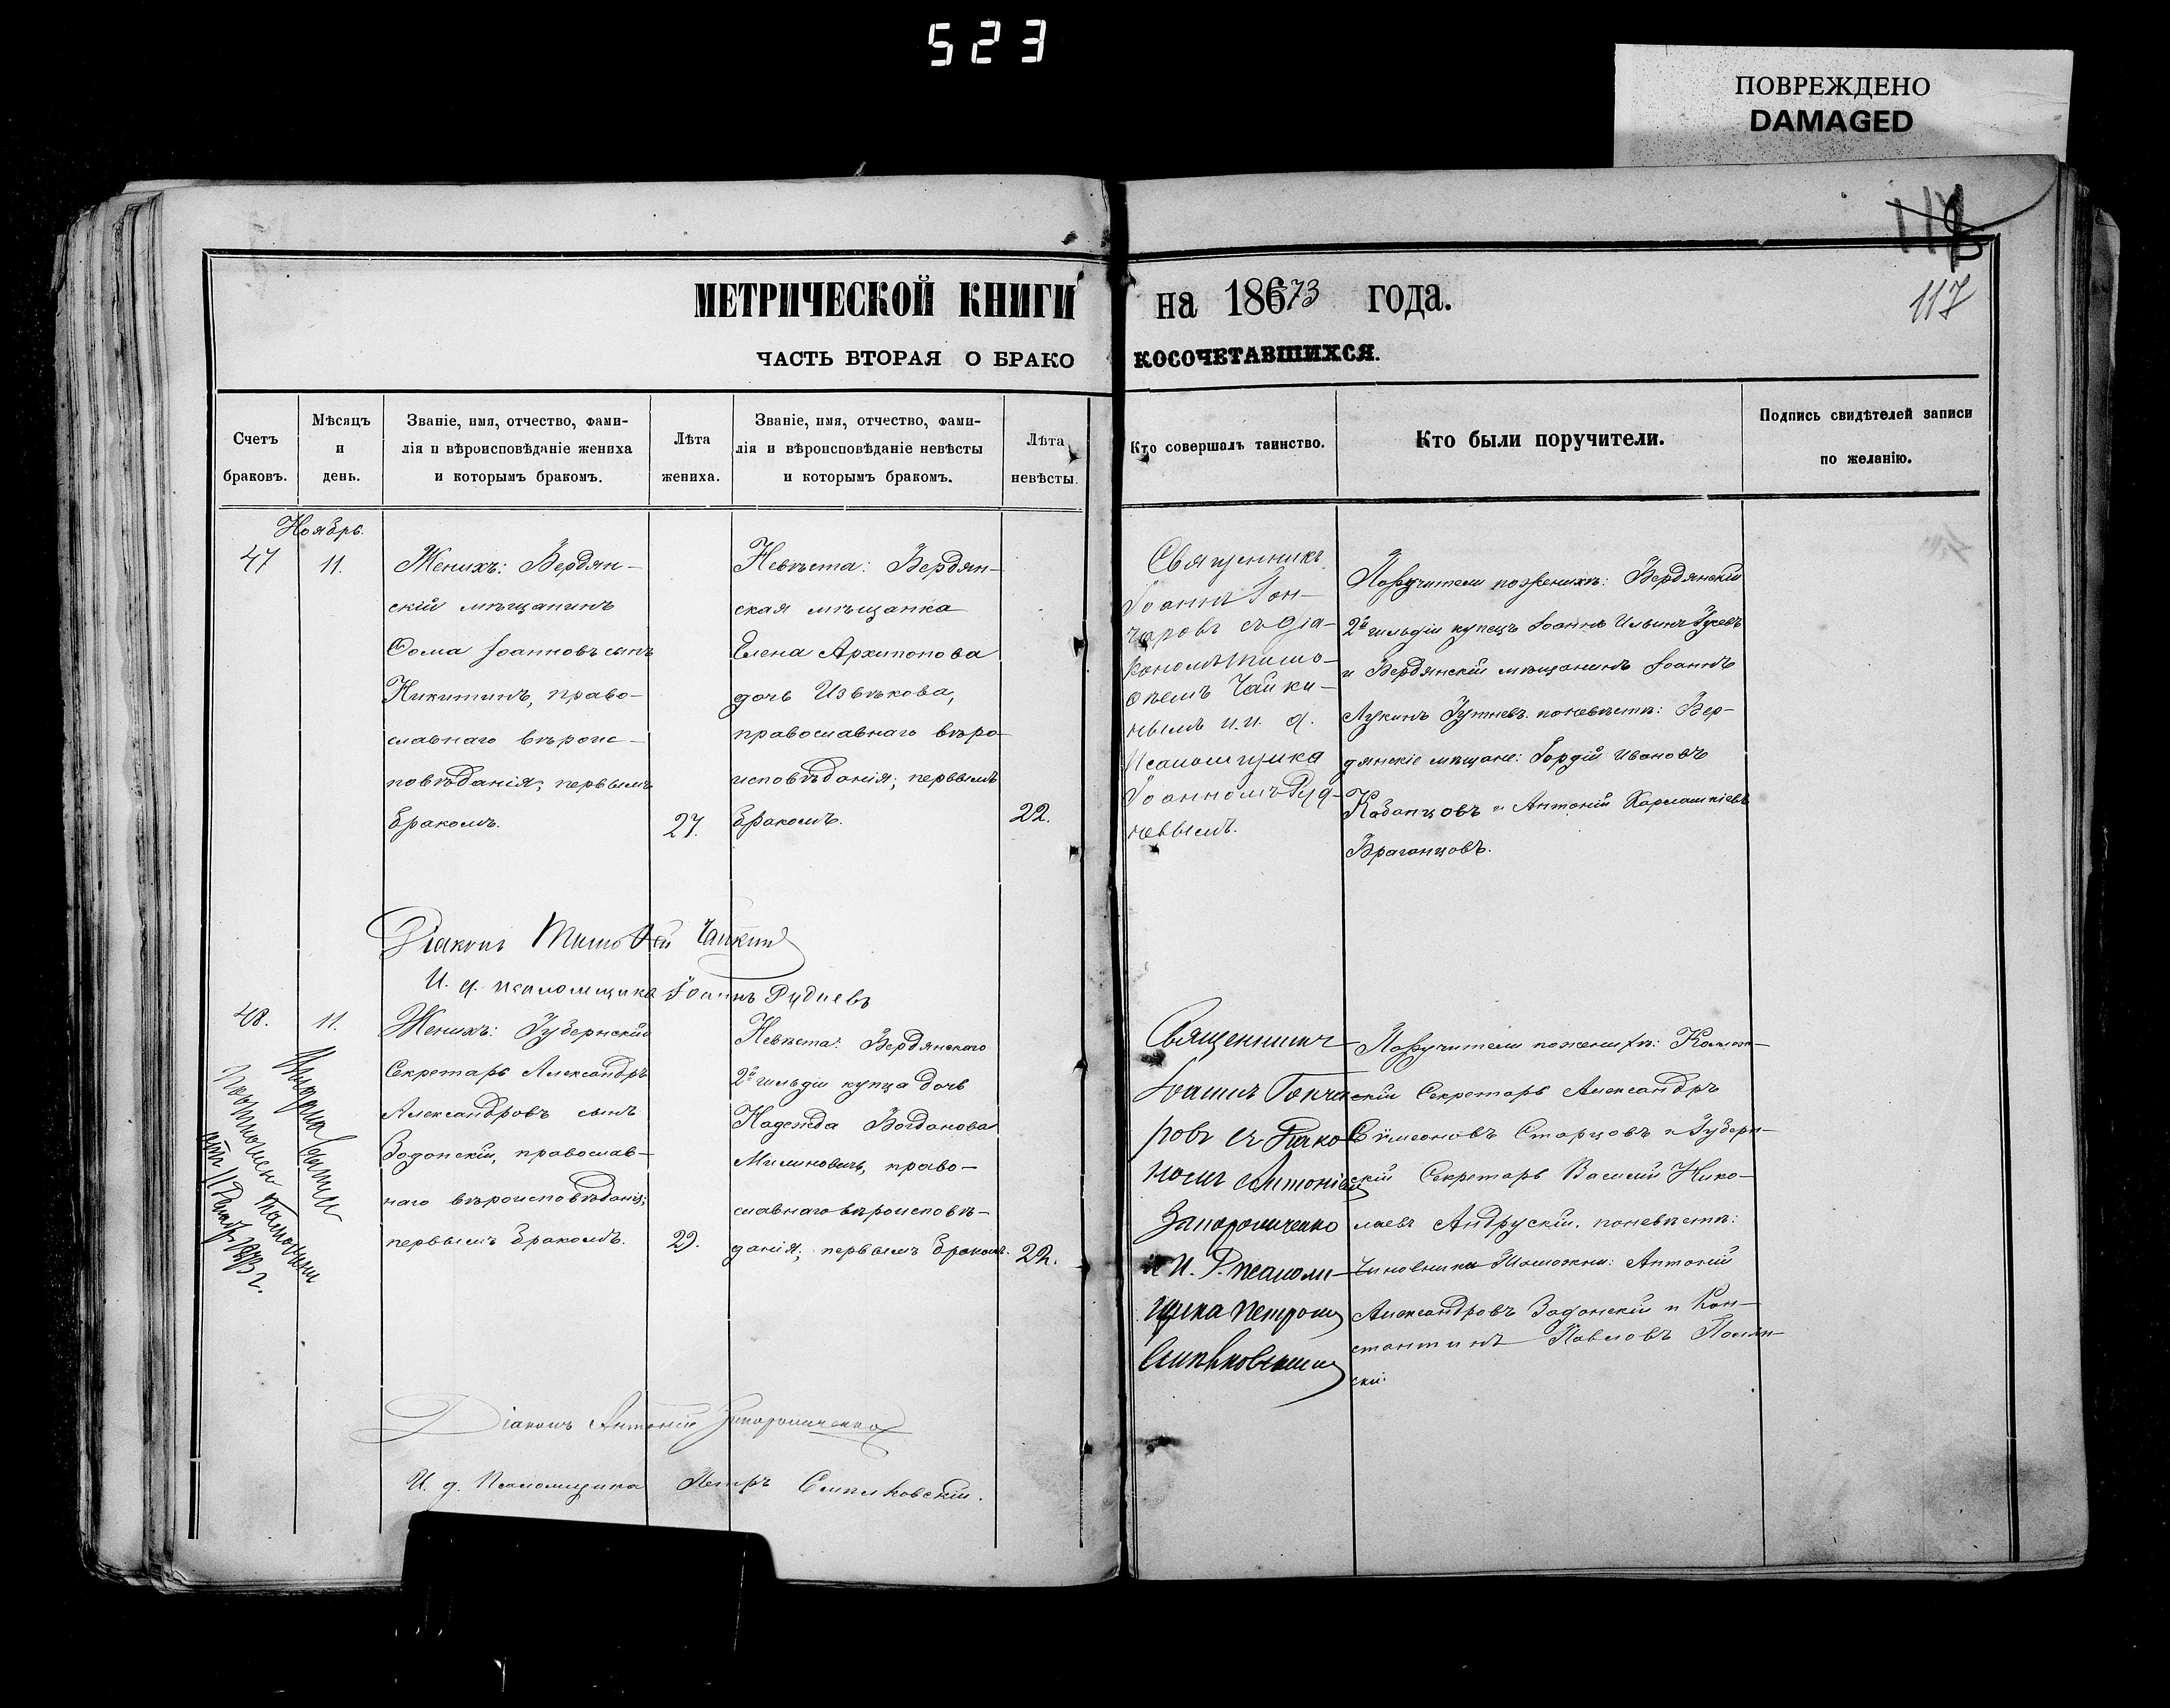 523
ПОВРЕЖДЕНО
DAMAGED
117
117
МЕТРИЧЕСКОЙ КНИГИ на 18673 года.
ЧАСТЬ ВТОРАЯ О БРАКОКОСОЧЕТАВШИХСЯ.
Счетъ
браковъ.
Мѣсяцъ
и
день.
Званіе, имя, отчество, фами-
лія и вѣроисповѣданіе жениха
и которымъ бракомъ.
Лѣта
жениха.
Званіе, имя, отчество, фами-
лія и вѣроисповѣданіе невѣсты
и которымъ бракомъ.
Лѣта
невѣсты.
Кто совершалъ таинство.
Кто были поручители.
Подпись свидѣтелей записи
по желанію.
Ноябрь.
47
11.
Женихъ: Бердян-
скій мѣщанинъ
Ѳома Іоанновъ сынъ
Никитинъ, право-
славнаго вѣроис-
повѣданія; первымъ
бракомъ.
27.
Невѣста: Бердян-
ская мѣщанка
Елена Архипопова
дочь Извѣкова,
православнаго вѣро-
исповѣданія; первымъ
бракомъ.
22.
Священникъ
Іоаннъ Гон-
чаровъ съ діа-
кономъ Тимо-
ѳеемъ Чайки-
нымъ и и. д.
Псаломщика
Іоанномъ Руд-
невымъ.
Поручители по женихѣ: Бердянскій
2й гильдіи купецъ Іоаннъ Ильинъ Гусевъ
и Бердянскій мѣщанинъ Іоаннъ
Лукинъ Гутневъ. по невѣстѣ: Бер-
дянскіе мѣщане: Гордій Ивановъ
Кабанцовъ и Антоній
Враганцовъ.
Діаконъ Тимоѳей Чайкинъ
И. д. псаломщика Іоаннъ Рудневъ
48.
11.
Женихъ: Губернскій
Секретарь Александръ
Александровъ сынъ
Задонскій, православ-
наго вѣроисповѣданія;
первымъ бракомъ.
29.
Невѣста: Бердянскаго
2й гильдіи купца дочь
Надежда Богданова
Милиновичъ, право-
славнаго вѣроисповѣ-
данія; первымъ бракомъ.
22.
Священникъ
Іоаннъ Гонча
ровъ съ Діако
номъ Антоніемъ
Запорожченко
и И. Д. псалом-
щика Петромъ
Слипковскимъ
Поручители по женихѣ: Коллеж-
скій Секретарь Александръ
Симеоновъ Старцовъ и Губерн-
скій Секретарь Василій Нико-
лаевъ Андрускій. по невѣстѣ:
Чиновники Таможни: Антоній
Александровъ Задонскій и Кон-
стантинъ Павловъ Полян-
скій.
Діаконъ Антоній Запорожченко
И. д. Псаломщика Петръ Слипковскій.